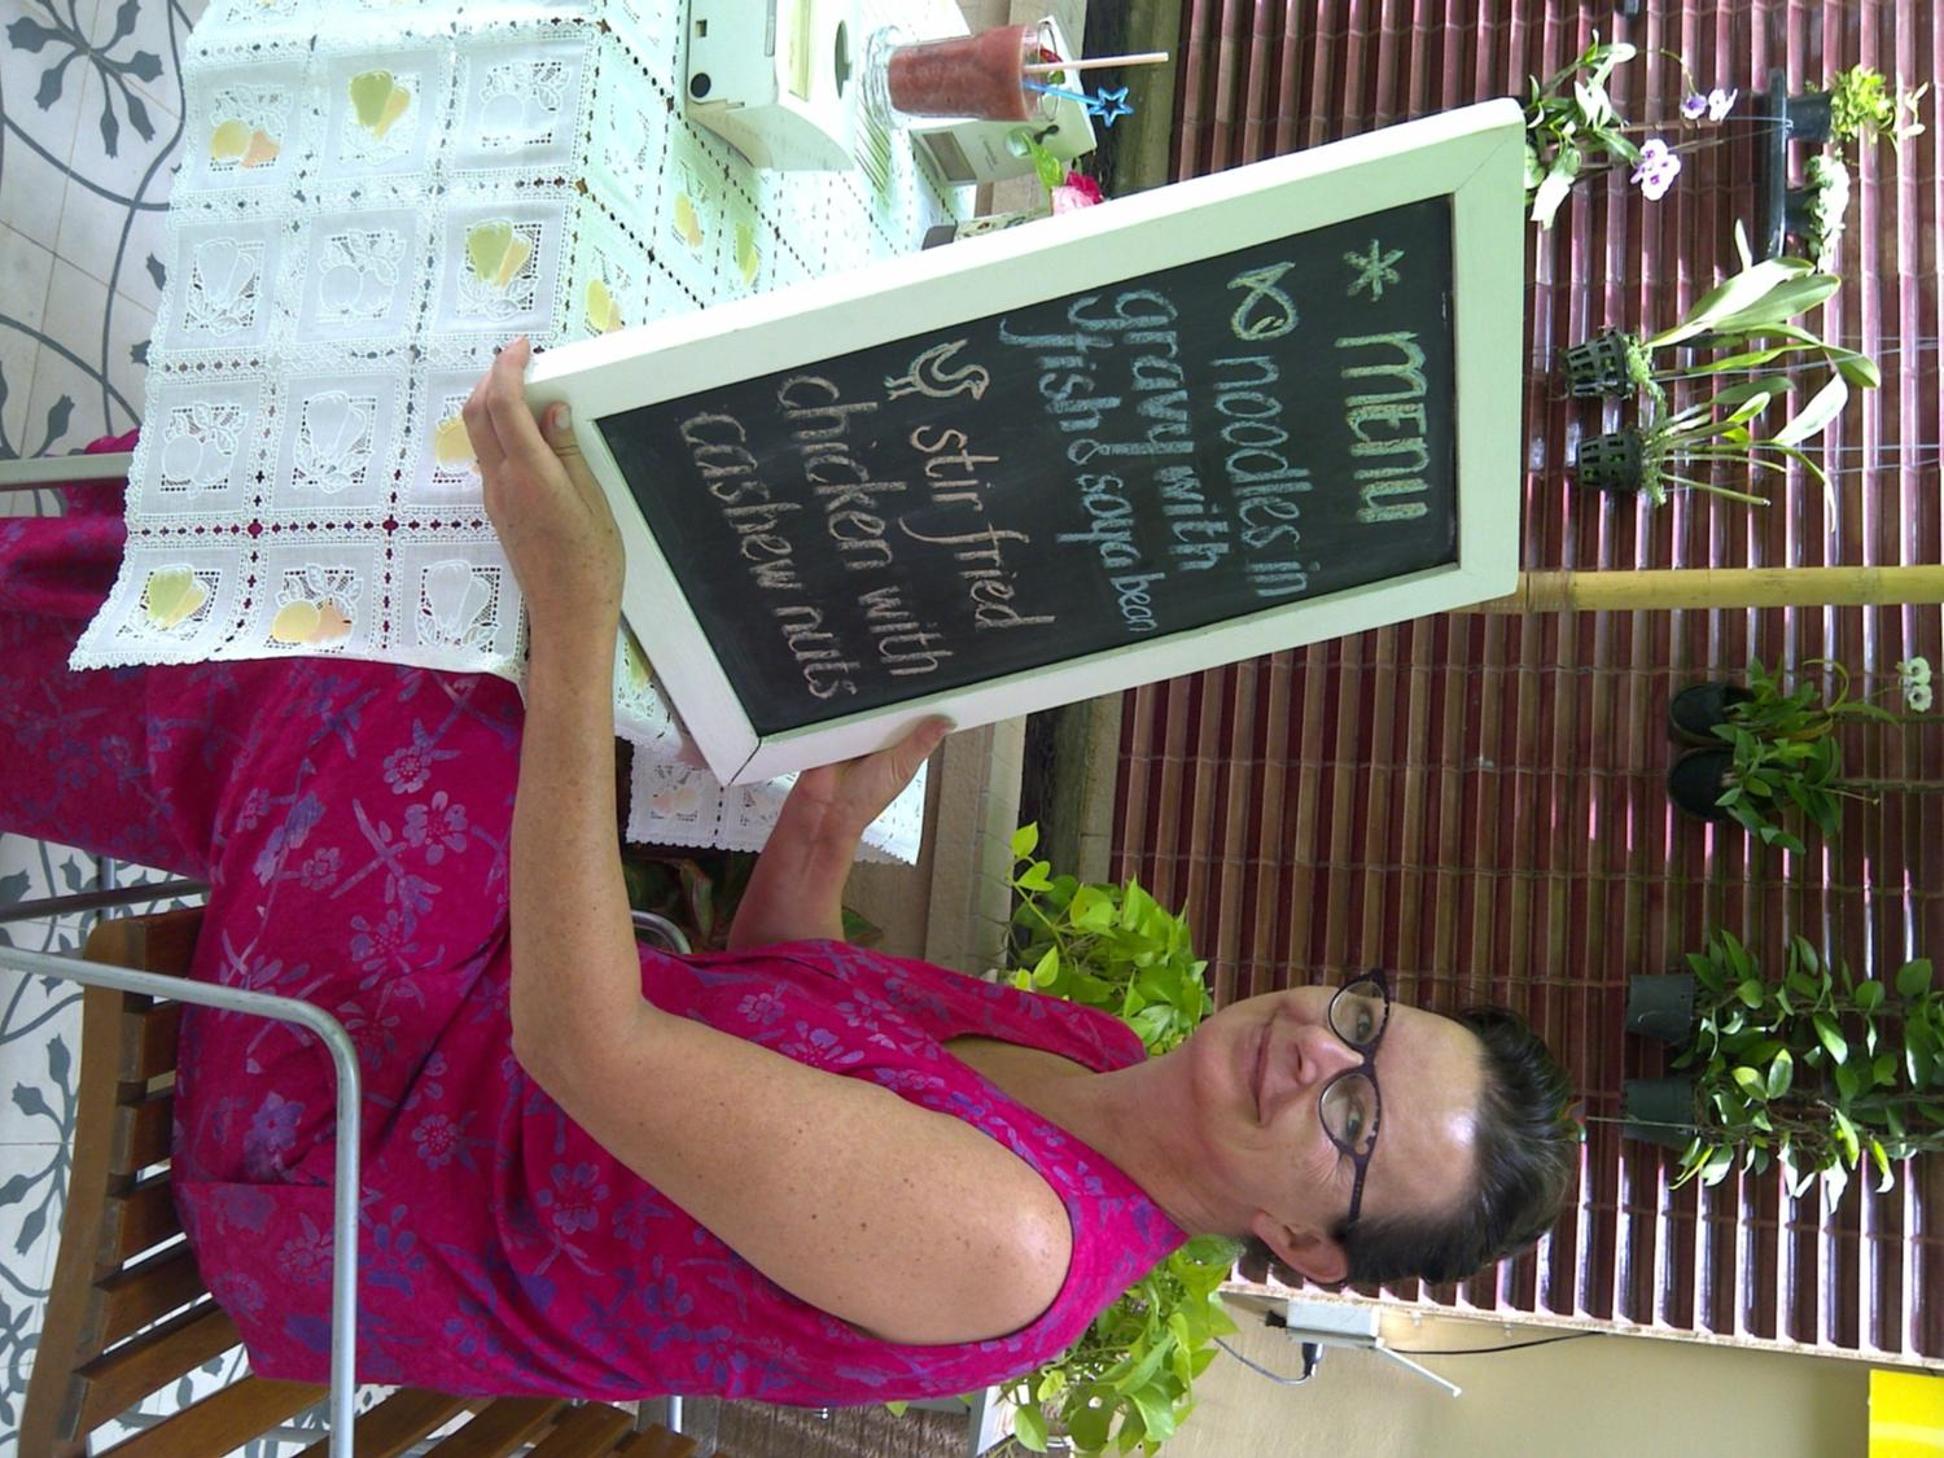 * MENU
noodles in
gravy with
fish & soya bean
stir fried
chicken with
cashew nuts